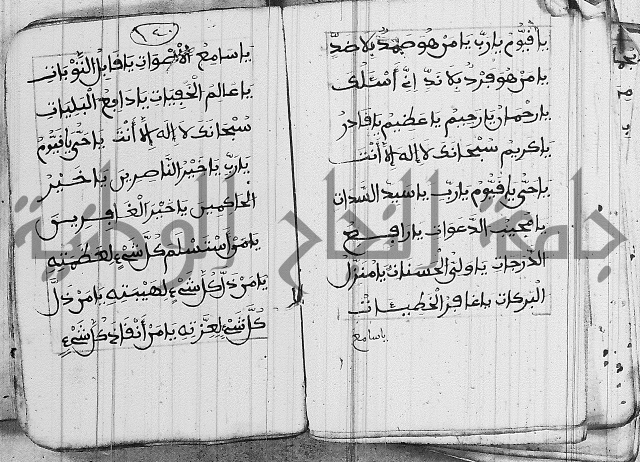 يا قيوم يا رب يا من هو صمد بلا ضد
يا من هو فرد بلا ند إني أسئلك
يا رحمان يا رحيم يا عظيم يا قادر
يا كريم سبحانك لا إله إلا أنت
يا حي يا قيوم يا رب يا سيد السدات
يا مجيب الدعوات يا رافع
الدرجات يا ولي الحسنات يا منزل
البركات يا غافر الخطيئات
يا سامع
يا سامع الأصوات يا قابل التوبات
يا عالم الخفيات يا دافع البليات
سبحانك لا إله إلا أنت يا حي يا قيوم
يا رب يا خير الناصرين يا خير
الحاكمين يا خير الغافرين
يا من استسلم كل شيء لعظمته
يا من ذل كل شيء لهيبته يا من ذل
كل شيء لعزته يا من انقاد كل شيء
جامعة النجاح الوطنية